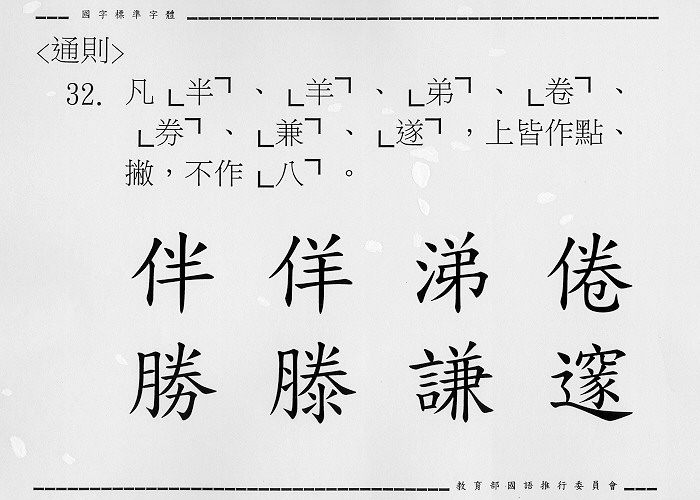 國字標準字體
<通則>
32. 凡「半」、「羊」、「弟」、「卷」、
「劵」、「兼」、「遂」，上皆作點、
撇，不作「八」。
伴 佯 涕 倦
勝 滕 謙 邃
教育部國語推行委員會